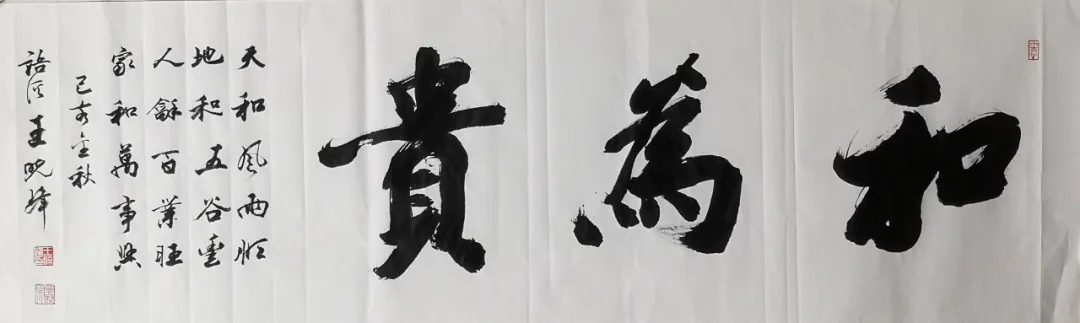 和為貴
天和風雨順
地和五谷豐
人龢百業旺
家和萬事興
己亥金秋
語溪王晓峰